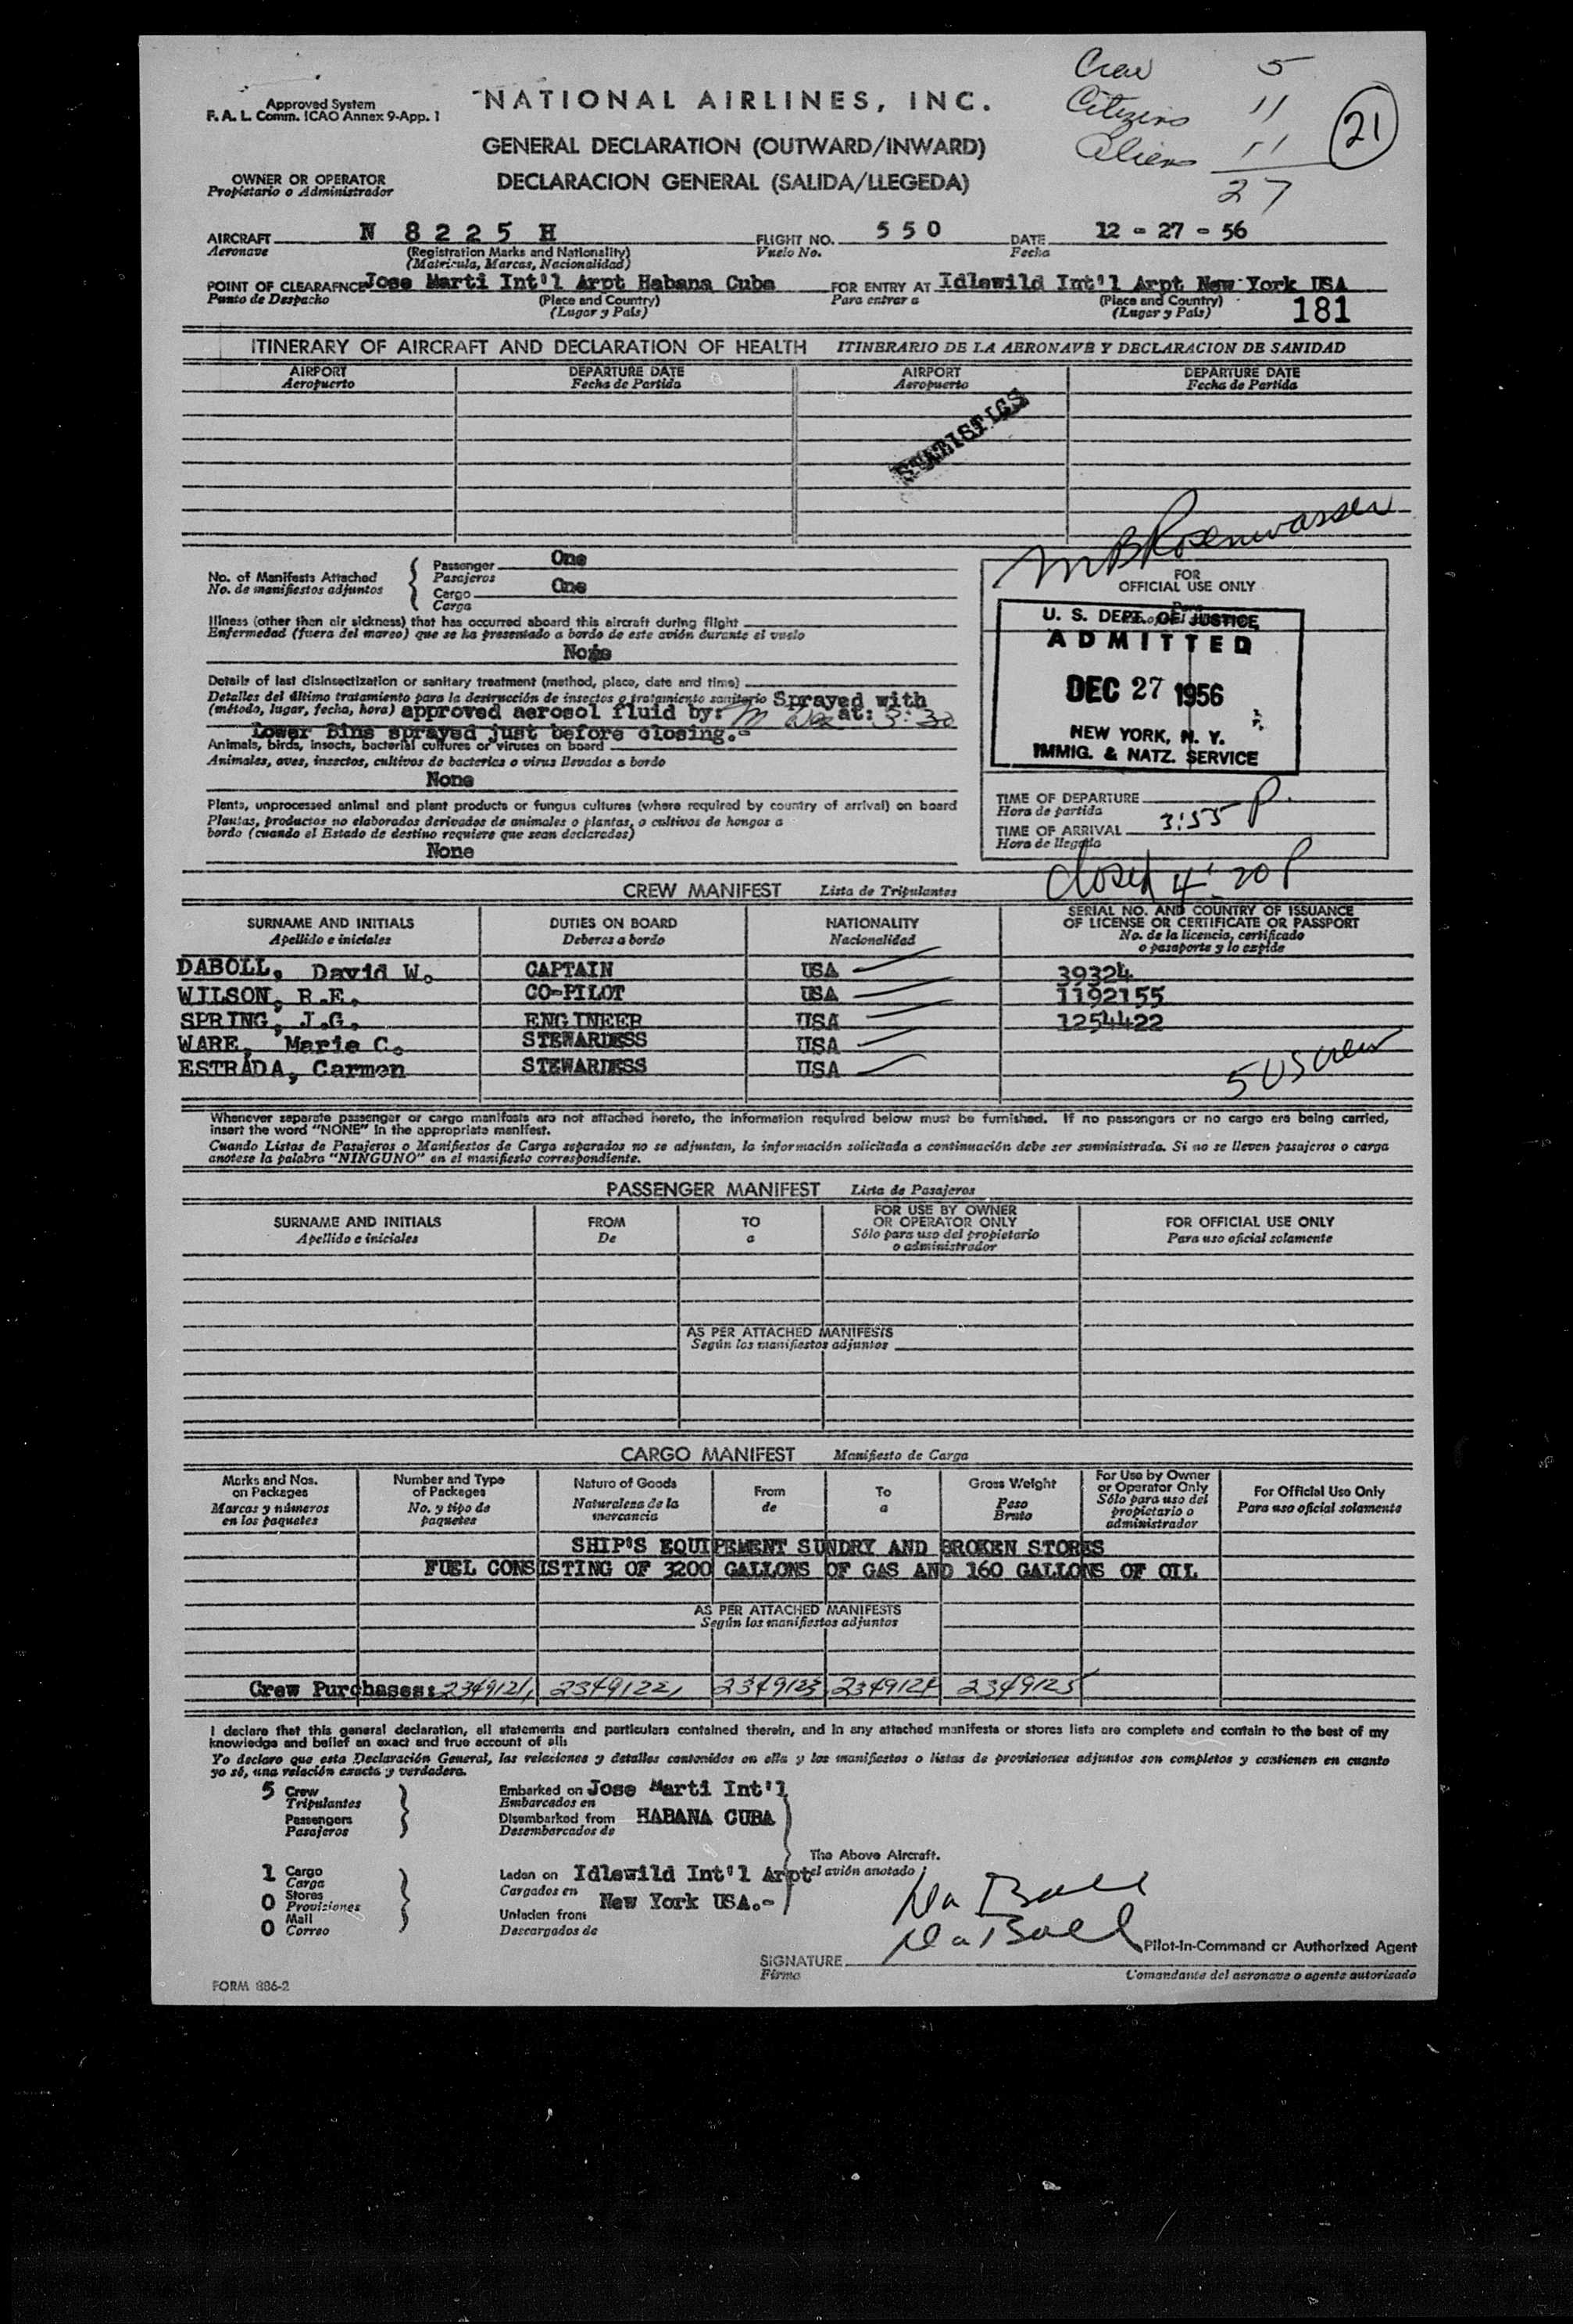 Crew 5
Citizens 11
Aliens 11
27
21
Approved System
F. A. L. Comm. ICAO Annex 9-App. 1
NATIONAL AIRLINES, INC.
GENERAL DECLARATION (OUTWARD/INWARD)
DECLARACION GENERAL (SALIDA/LLEGEDA)
OWNER OR OPERATOR
Propietario o Administrador
AIRCRAFT N 8 2 2 5 H FLIGHT NO. 5 5 0 DATE 12 - 27 - 56
Aeronave (Registration Marks and Nationality) Vuelo No. Fecha
(Matrícula, Marcas, Nacionalidad)
POINT OF CLEARAFNCE Jose Marti Int'l Arpt Habana Cuba FOR ENTRY AT Idlewild Int'l Arpt New York USA
Punto de Despacho (Place and Country) Para entrar a (Place and Country)
(Lugar y País) (Lugar y País) 181
ITINERARY OF AIRCRAFT AND DECLARATION OF HEALTH ITINERARIO DE LA AERONAVE Y DECLARACION DE SANIDAD
AIRPORT DEPARTURE DATE AIRPORT DEPARTURE DATE
Aeropuerto Fecha de Partida Aeropuerto Fecha de Partida
STATISTICS
M B Rosenwasser
No. of Manifests Attached Passenger One
No. de manifiestos adjuntos Pasajeros
Cargo One
Carga
Illness (other than air sickness) that has occurred aboard this aircraft during flight
Enfermedad (fuera del mareo) que se ha presentado a bordo de este avión durante el vuelo
None
Details of last disinsectization or sanitary treatment (method, place, date and time)
Detalles del último tratamiento para la destrucción de insectos o tratamiento sanitario Sprayed with
(método, lugar, fecha, hora) approved aerosol fluid by: at: 3:30
Lower Bins sprayed just before closing.-
Animals, birds, insects, bacterial cultures or viruses on board
Animales, aves, insectos, cultivos de bacterias o virus llevados a bordo
None
Plants, unprocessed animal and plant products or fungus cultures (where required by country of arrival) on board
Plantas, productos no elaborados derivados de animales o plantas, o cultivos de hongos a
bordo (cuando el Estado de destino requiere que sean declarados)
None
FOR
OFFICIAL USE ONLY
U. S. DEPT. OF JUSTICE
ADMITTED
DEC 27 1956
NEW YORK, N. Y.
IMMIG. & NATZ. SERVICE
TIME OF DEPARTURE
Hora de partida
TIME OF ARRIVAL 3:55 P.
Hora de llegada
Closed 4:20 P
CREW MANIFEST Lista de Tripulantes
SURNAME AND INITIALS DUTIES ON BOARD NATIONALITY SERIAL NO. AND COUNTRY OF ISSUANCE
OF LICENSE OR CERTIFICATE OR PASSPORT
Apellido e iniciales Deberes a bordo Nacionalidad No. de la licencia, certificado
o pasaporte y lo expide
DABOLL, David W. CAPTAIN USA 39324
WILSON, R.E. CO-PILOT USA 1192155
SPRING, J.G. ENGINEER USA 1254422
WARE, Marie C. STEWARDESS USA
ESTRADA, Carmen STEWARDESS USA
5 US crew
Whenever separate passenger or cargo manifests are not attached hereto, the information required below must be furnished. If no passengers or no cargo are being carried,
insert the word "NONE" in the appropriate manifest.
Cuando Listas de Pasajeros o Manifiestos de Carga separados no se adjuntan, la información solicitada a continuación debe ser suministrada. Si no se lleven pasajeros o carga
anotese la palabra "NINGUNO" en el manifiesto correspondiente.
PASSENGER MANIFEST Lista de Pasajeros
SURNAME AND INITIALS FROM TO FOR USE BY OWNER OR OPERATOR ONLY FOR OFFICIAL USE ONLY
Apellido e iniciales De a Sólo para uso del propietario o administrador Para uso oficial solamente
AS PER ATTACHED MANIFESTS
Según los manifiestos adjuntos
CARGO MANIFEST Manifiesto de Carga
Marks and Nos. on Packages Number and Type of Packages Nature of Goods From To Gross Weight For Use by Owner or Operator Only For Official Use Only
Marcas y números en los paquetes No. y tipo de paquetes Naturaleza de la mercancia de a Peso Bruto Sólo para uso del propietario o administrador Para uso oficial solamente
SHIP'S EQUIPEMENT SUNDRY AND BROKEN STORES
FUEL CONSISTING OF 3200 GALLONS OF GAS AND 160 GALLONS OF OIL
AS PER ATTACHED MANIFESTS
Según los manifiestos adjuntos
Crew Purchases: 2349121, 2349122, 2349123, 2349124 2349125
I declare that this general declaration, all statements and particulars contained therein, and in any attached manifests or stores lists are complete and contain to the best of my
knowledge and belief an exact and true account of all:
Yo declaro que esta Declaración General, las relaciones y detalles contenidos en ella y los manifiestos o listas de provisiones adjuntos son completos y contienen en cuanto
yo sé, una relación exacta y verdadera.
5 Crew Embarked on Jose Marti Int'l
Tripulantes Embarcados en
Passengers Disembarked from HABANA CUBA
Pasajeros Desembarcados de
The Above Aircraft.
1 Cargo Laden on Idlewild Int'l Arpt el avión anotado
Carga Cargados en
0 Stores New York USA.-
Provisiones Unladen from
0 Mail Descargados de
Correo
DaBoll
DaBoll
SIGNATURE Pilot-in-Command or Authorized Agent
Firma Comandante del aeronave o agente autorizado
FORM 886-2